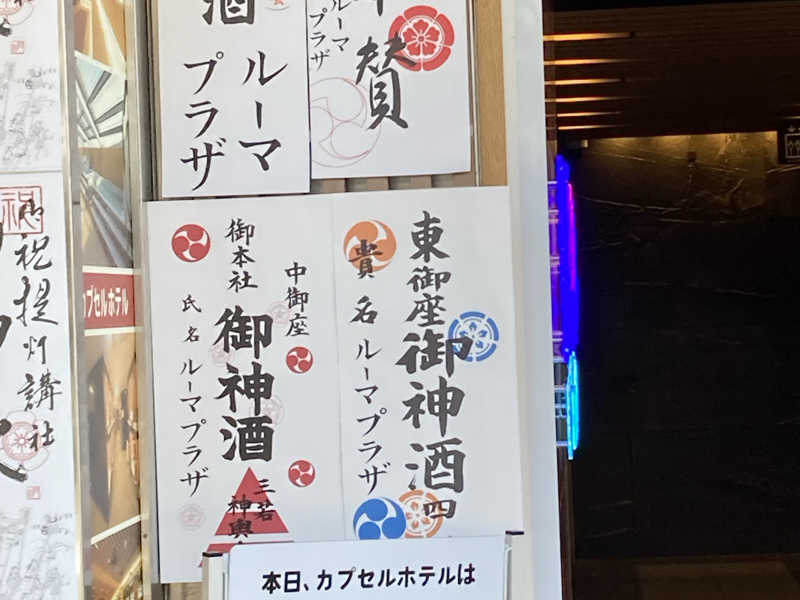 酒
ルーマ
プラザ
ルーマ
プラザ
賛
祝
御祝
提灯講社
カプセルホテル
東御座
御神酒
四
貴名
ルーマプラザ
中御座
御本社
御神酒
三若
神輿
氏名
ルーマプラザ
本日、カプセルホテルは